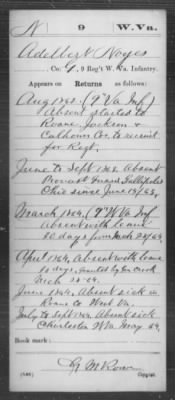 N 9 W.Va.
Adelbert Noyes
, Co. G, 9 Reg't W. Va. Infantry.
Appears on Returns as follows:
Aug 1862. (9" Va Inf)
Absent started to
Roane, Jackson &
Calhoun Cos. to recruit
for Regt.
June to Sept 1863. Absent
Provost Guard Gallipolis
Ohio since June 13/63.
March 1864. (9" W Va Inf
Absent with leave
30 days from Mch 25/64.
April 1864. Absent with leave
30 days. Granted by Gen Crook
Mch 25-64.
June 1864. Absent sick in
Roane Co West Va.
July to Sept 1864. Absent sick
Charleston W Va May 64.
Book mark:
G M
(546) Copyist.